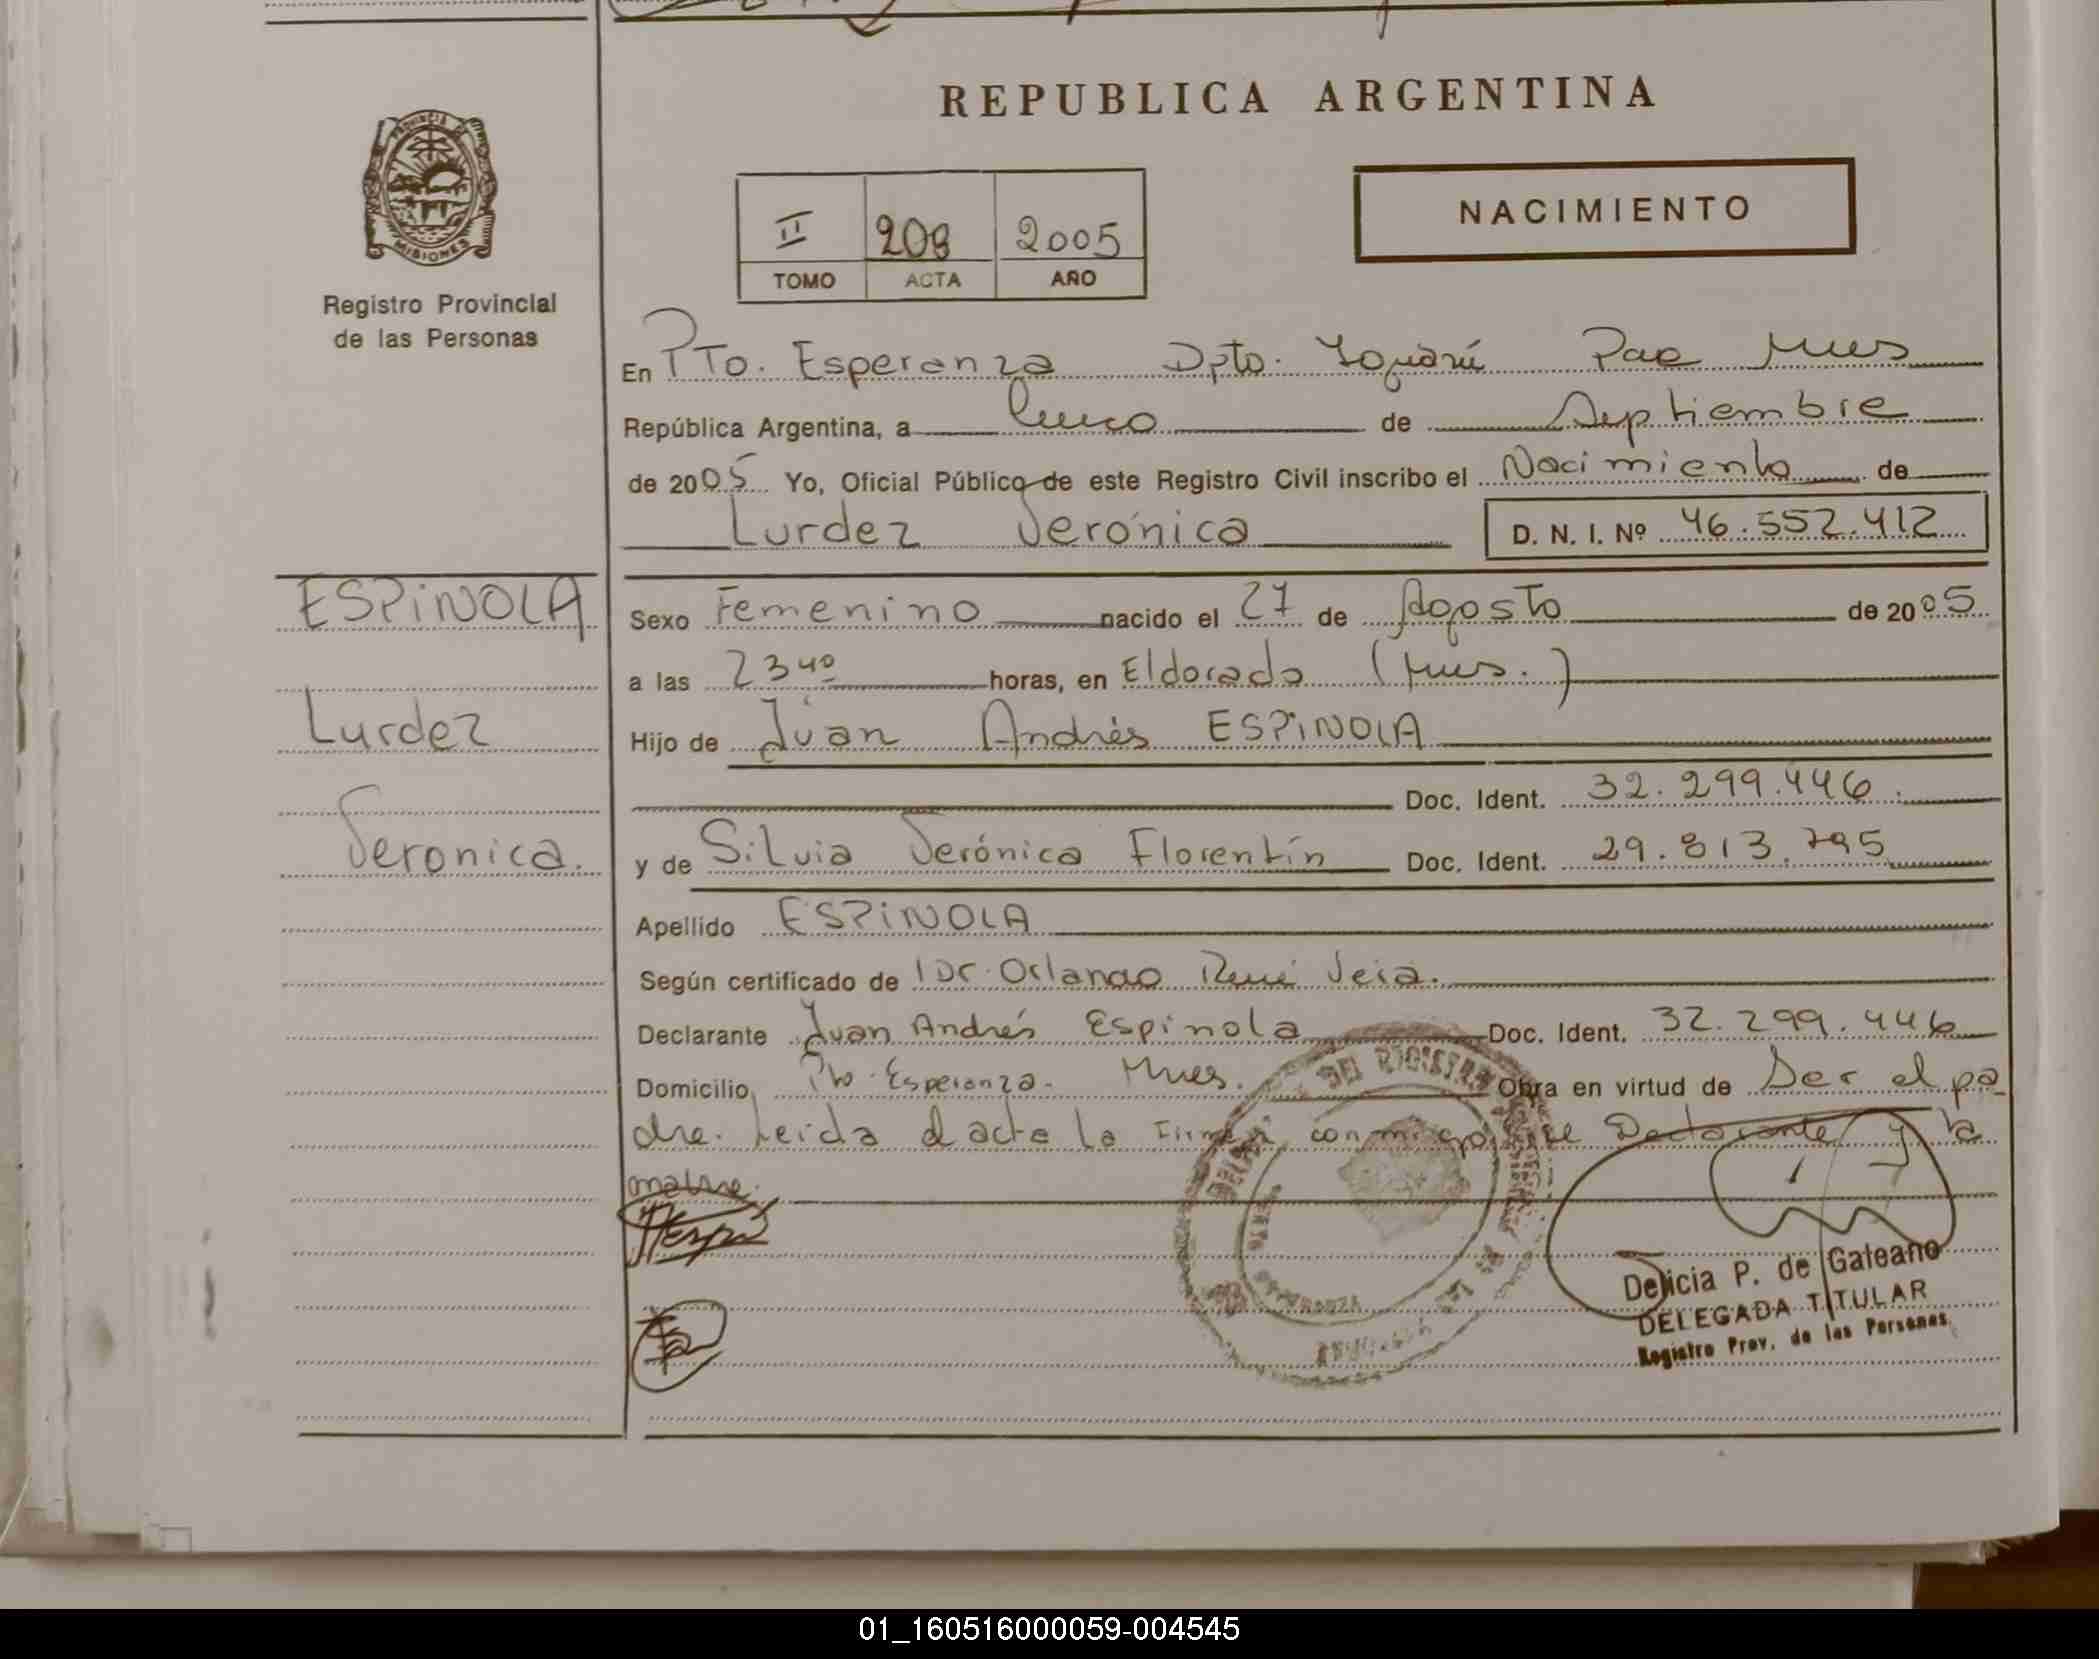 REPUBLICA ARGENTINA
NACIMIENTO
II 208 2005
TOMO ACTA AÑO
PROVINCIA DE
MISIONES
Registro Provincial
de las Personas
En Pto. Esperanza Dpto. Iguazú Pcia Mnes
República Argentina, a Cinco de Septiembre
de 2005 Yo, Oficial Público de este Registro Civil inscribo el Nacimiento de
Lurdez Verónica D. N. I. Nº 46.552.412
ESPINOLA
Lurdez
Veronica.
Sexo Femenino nacido el 27 de Agosto de 2005
a las 23 40 horas, en Eldorado (Mnes.)
Hijo de Juan Andrés ESPINOLA
Doc. Ident. 32.299.446.
y de Silvia Verónica Florentín Doc. Ident. 29.813.795
Apellido ESPINOLA
Según certificado de Dr. Orlando René Vera.
Declarante Juan Andrés Espinola Doc. Ident. 32.299.446
Domicilio Pto. Esperanza. Mnes. Obra en virtud de Ser el pa
dre. Leida el acta la Firman conmigo el Declarante y la
madre.
Delicia P. de Galeano
DELEGADA TITULAR
Registro Prov. de las Personas
01_160516000059-004545